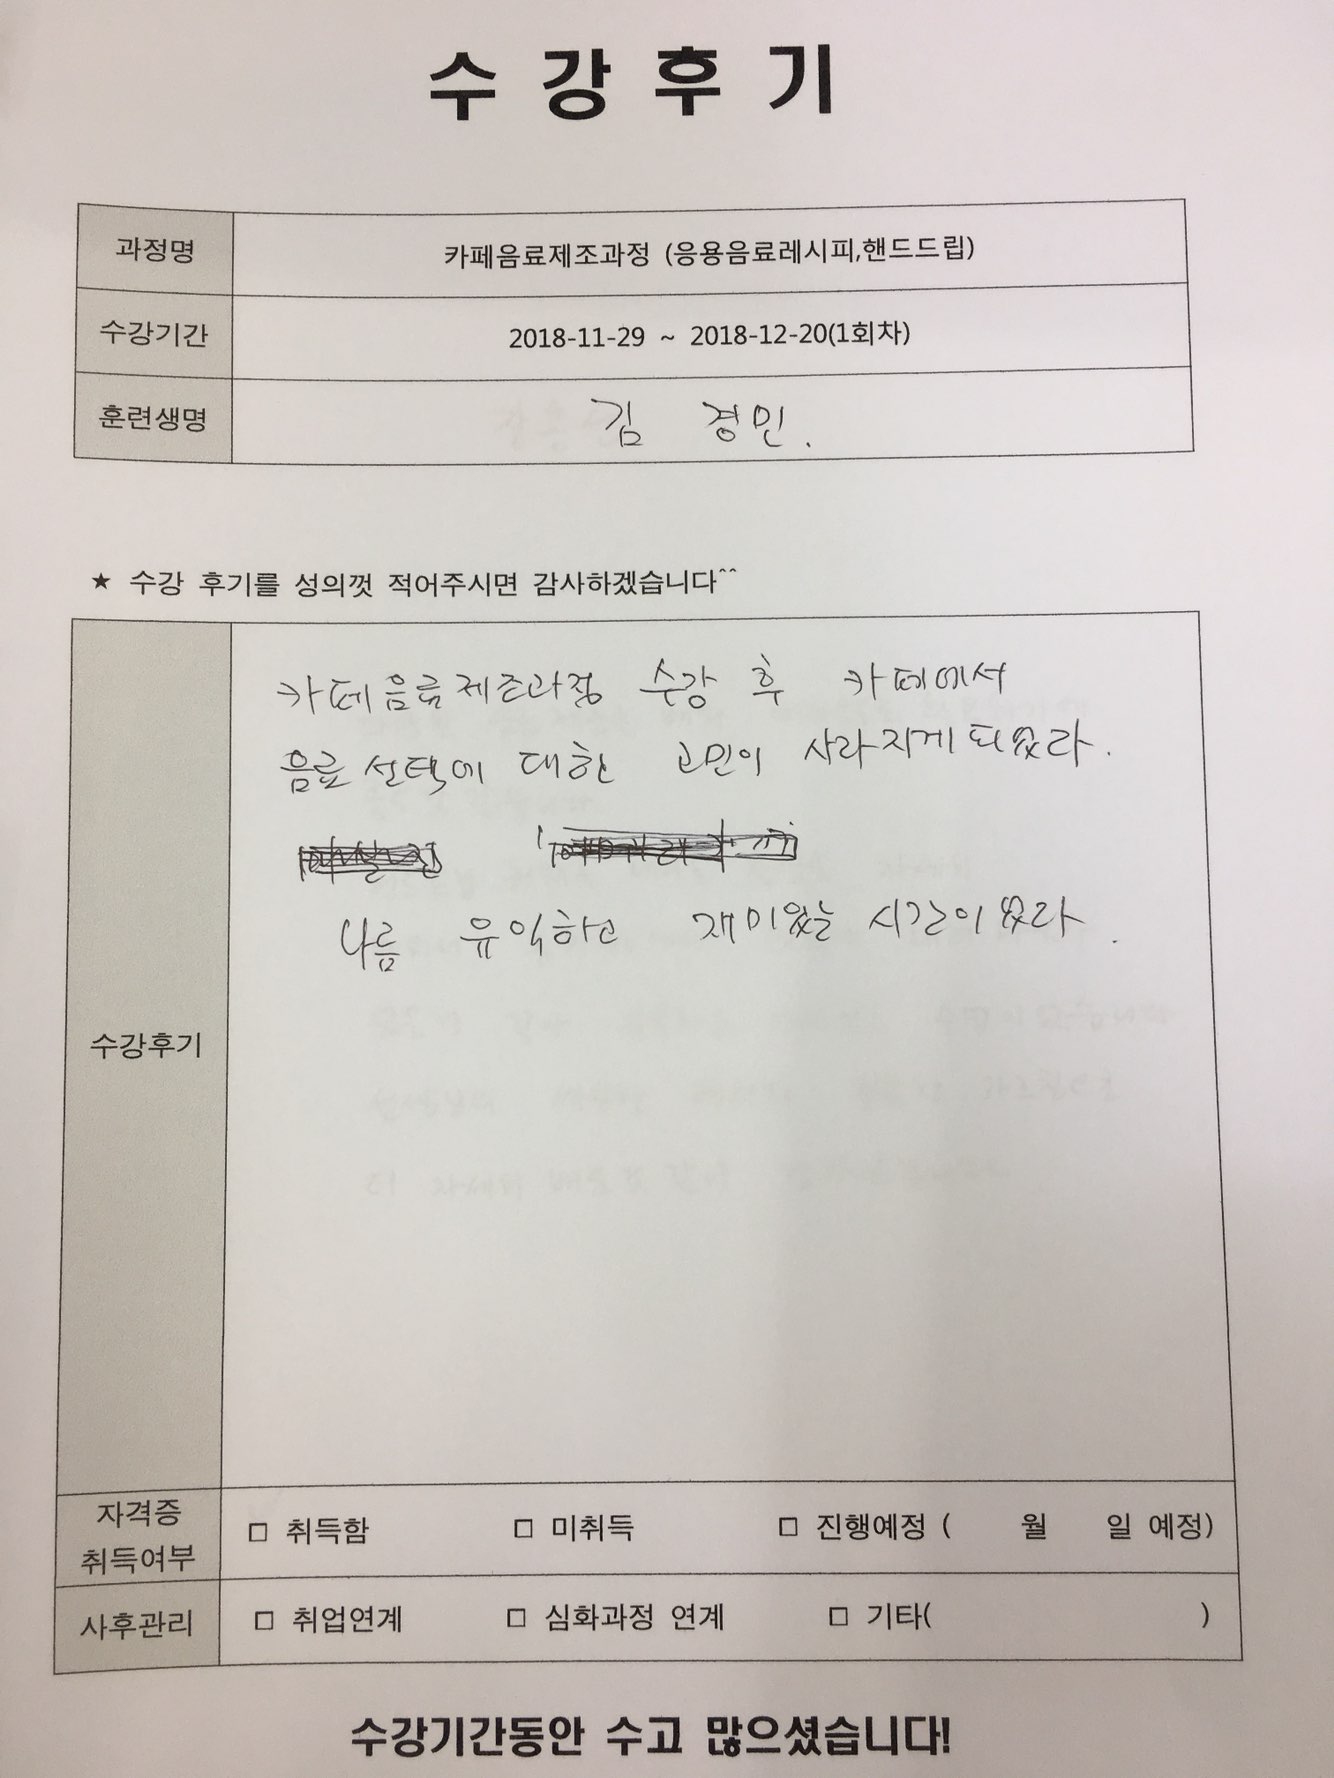 수강후기
과정명 카페음료제조과정 (응용음료레시피,핸드드립)
수강기간 2018-11-29 ~ 2018-12-20(1회차)
훈련생명 김 경민.
★ 수강 후기를 성의껏 적어주시면 감사하겠습니다^^
카페음료제조과정 수강 후 카페에서
음료 선택에 대한 고민이 사라지게 되었다.
나름 유익하고 재미있는 시간이었다.
수강후기
자격증
취득여부
□ 취득함 □ 미취득 □ 진행예정 ( 월 일 예정)
사후관리 □ 취업연계 □ 심화과정 연계 □ 기타( )
수강기간동안 수고 많으셨습니다!